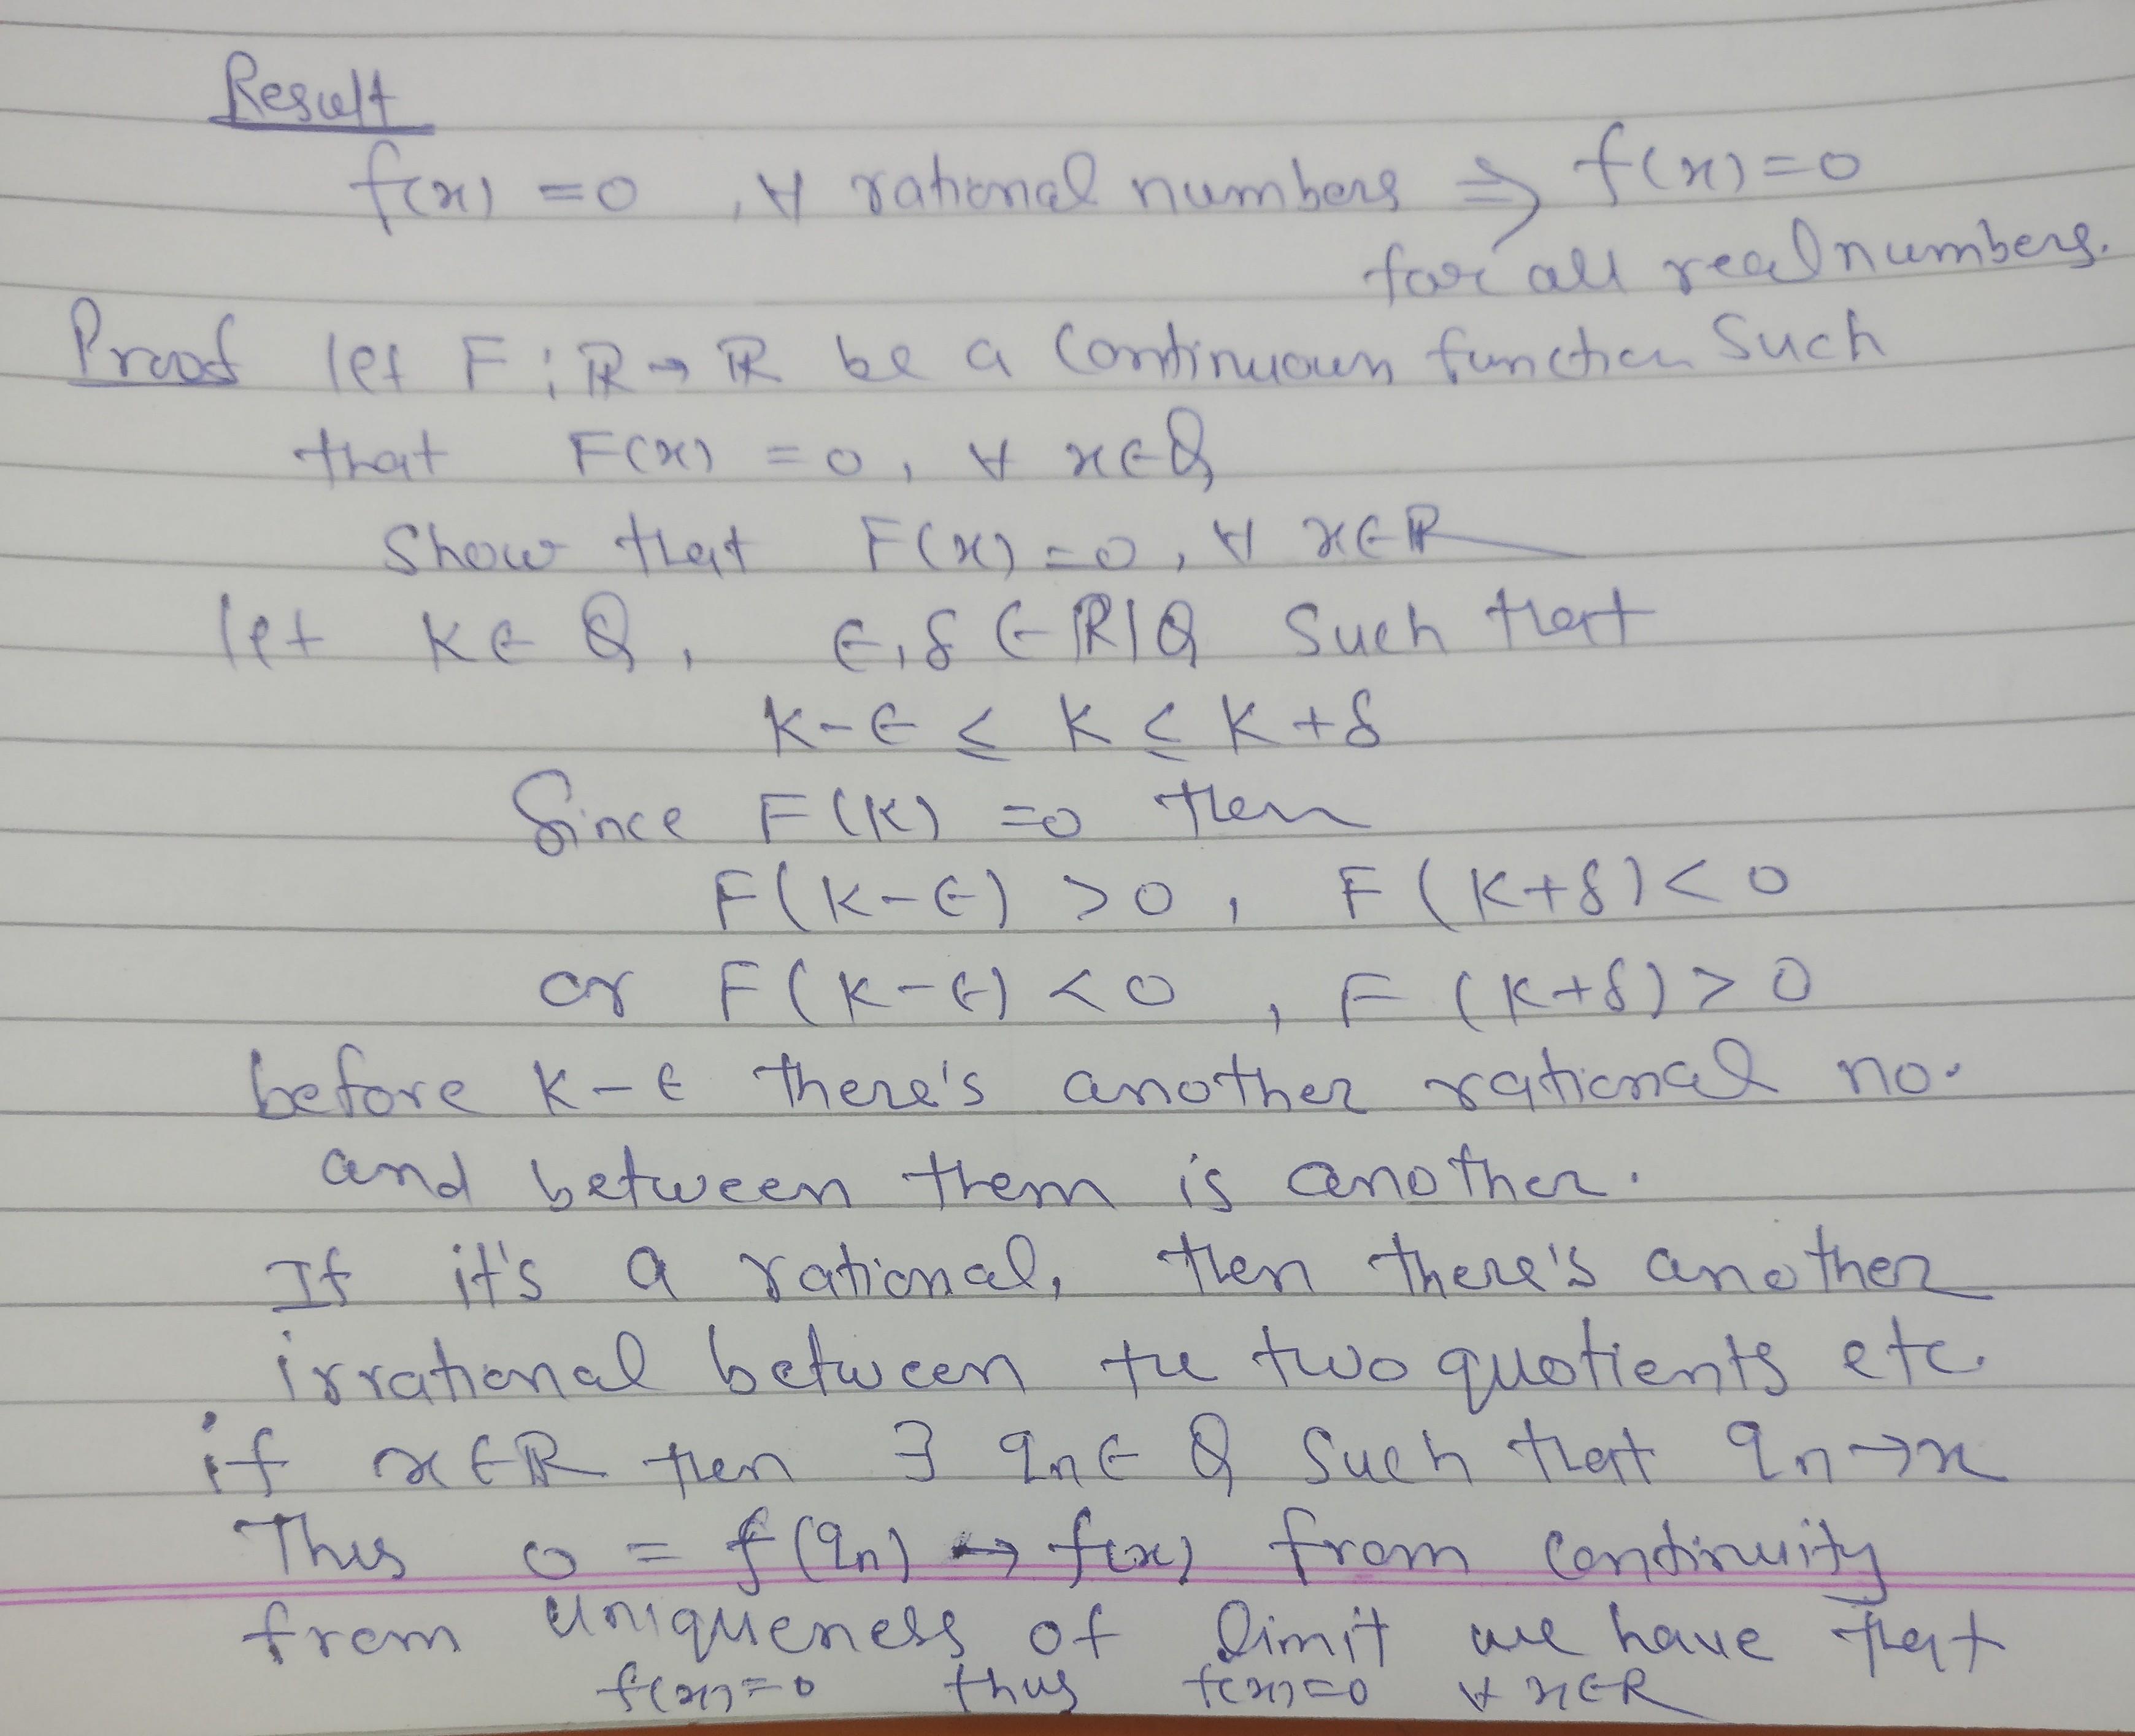 Result
f(x) = 0 , ∀ rational numbers ⇒ f(x) = 0
for all real numbers.
Proof let F : ℝ → ℝ be a continuous function such
that F(x) = 0, ∀ x ∈ ℚ
Show that F(x) = 0, ∀ x ∈ ℝ
let K ∈ ℚ, ϵ, δ ∈ ℝ|ℚ such that
K - ϵ ≤ K ≤ K + δ
Since F(K) = 0 then
F(K - ϵ) > 0, F(K + δ) < 0
or F(K - ϵ) < 0, F(K + δ) > 0
before K - ϵ there's another rational no.
and between them is another.
If it's a rational, then there's another
irrational between the two quotients etc.
if x ∈ ℝ then ∃ qn ∈ ℚ such that qn → x
Thus 0 = f(qn) → f(x) from continuity
from uniqueness of limit we have that
f(x) = 0 thus f(x) = 0 ∀ x ∈ R